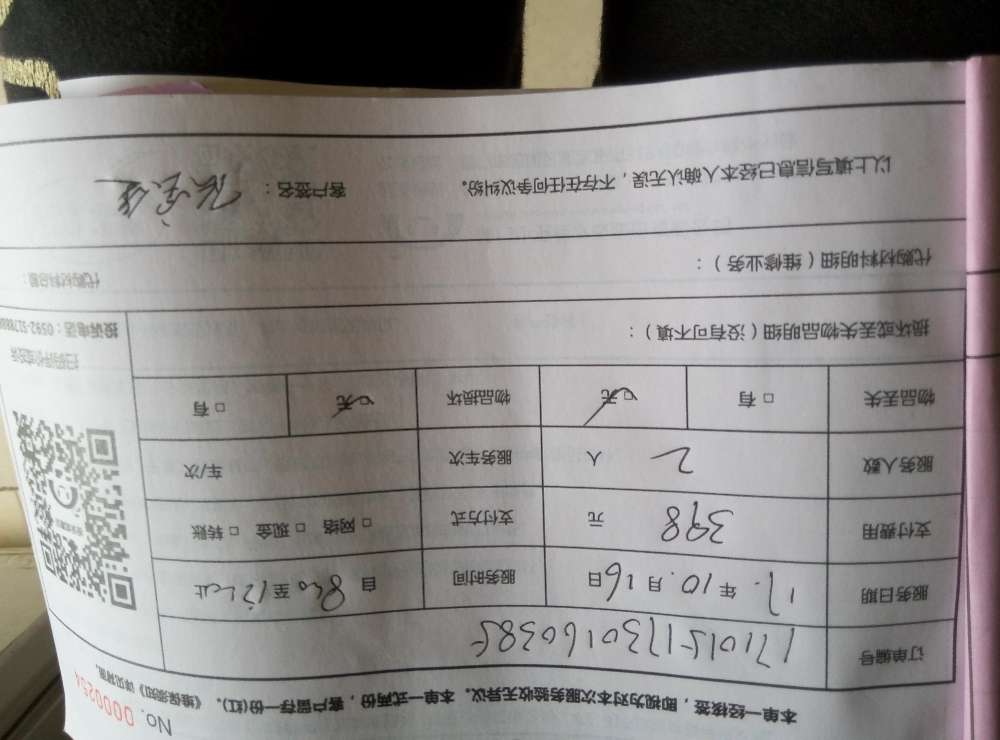 No. 0000254
本单一经核签，即视为对本次服务验收无异议。本单一式两份，客户留存一份(红)。《维保须知》详见背面。
订单编号 1710151730160385
服务日期 17年10月16日 服务时间 自8:00至12:00止
支付费用 398元 支付方式 □ 网络 □ 现金 □ 转账
服务人数 2人 服务车次 车/次
物品丢失 □ 有 ☑无 物品损坏 ☑无 □ 有
损坏或丢失物品明细（没有可不填）：
扫码评价或投诉
投诉电话：0592-5178888
代购材料明细（维修业务）： 代购材料总额：
以上填写信息已经本人确认无误，不存在任何争议纠纷。 客户签名：